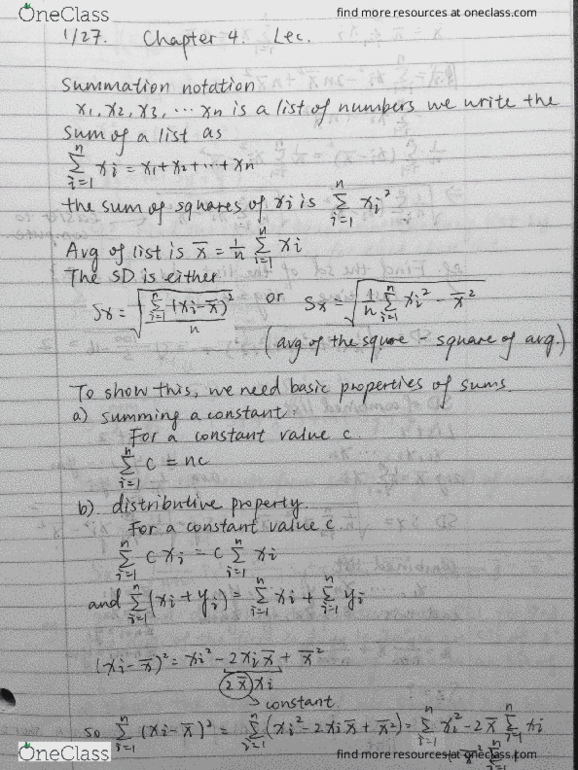 OneClass
find more resources at oneclass.com
1/27. Chapter 4. Lec.
Summation notation
x₁, x₂, x₃, ⋯ xn is a list of numbers we write the
sum of a list as
∑_{i=1}^{n} xi = x₁ + x₂ + ⋯ + xn
the sum of squares of xi is ∑_{i=1}^{n} xi²
Avg of list is x̄ = 1/n ∑_{i=1}^{n} xi
The SD is either
Sx = √(∑_{i=1}^{n} (xi - x̄)² / n) or Sx = √(1/n ∑_{i=1}^{n} xi² - x̄²)
(avg of the square - square of avg.)
To show this, we need basic properties of sums
a) summing a constant
For a constant value c.
∑_{i=1}^{n} c = nc
b) distributive property.
For a constant value c.
∑_{i=1}^{n} c xi = c ∑_{i=1}^{n} xi
and ∑_{i=1}^{n} (xi + yi) = ∑_{i=1}^{n} xi + ∑_{i=1}^{n} yi
(xi - x̄)² = xi² - 2xi x̄ + x̄²
(2x̄)xi
constant
so ∑_{i=1}^{n} (xi - x̄)² = ∑_{i=1}^{n} (xi² - 2xi x̄ + x̄²) = ∑_{i=1}^{n} xi² - 2x̄ ∑_{i=1}^{n} xi
OneClass
find more resources at oneclass.com